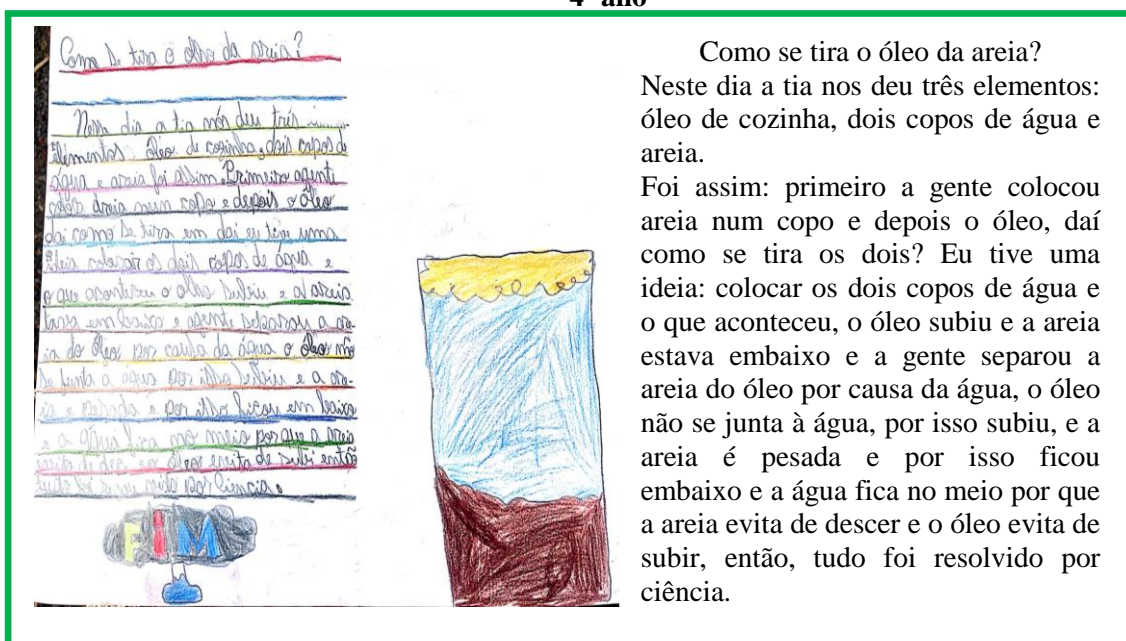 4º ano
Como se tira o olho da areia?
Nesse dia a tia nós deu três
elementos: óleo de cozinha, dois copos de
água e areia foi assim. Primeiro agente
areia num copo e depois o óleo
dai como se tira em dai eu tive uma
ideia colocar os dois copos de água e
o que aconteceu o olho subiu e a areia
tava em baixo e agente separou a are-
ia do óleo por causa da água o óleo não
se junta a água por isso subiu e a are-
ia e pesada e por isso ficou em baixo
e a água fica no meio porque a areia
evita de de e o óleo evita de subi então
tudo foi por ciencia.
FIM
Como se tira o óleo da areia?
Neste dia a tia nos deu três elementos:
óleo de cozinha, dois copos de água e
areia.
Foi assim: primeiro a gente colocou
areia num copo e depois o óleo, daí
como se tira os dois? Eu tive uma
ideia: colocar os dois copos de água e
o que aconteceu, o óleo subiu e a areia
estava embaixo e a gente separou a
areia do óleo por causa da água, o óleo
não se junta à água, por isso subiu, e a
areia é pesada e por isso ficou
embaixo e a água fica no meio por que
a areia evita de descer e o óleo evita de
subir, então, tudo foi resolvido por
ciência.